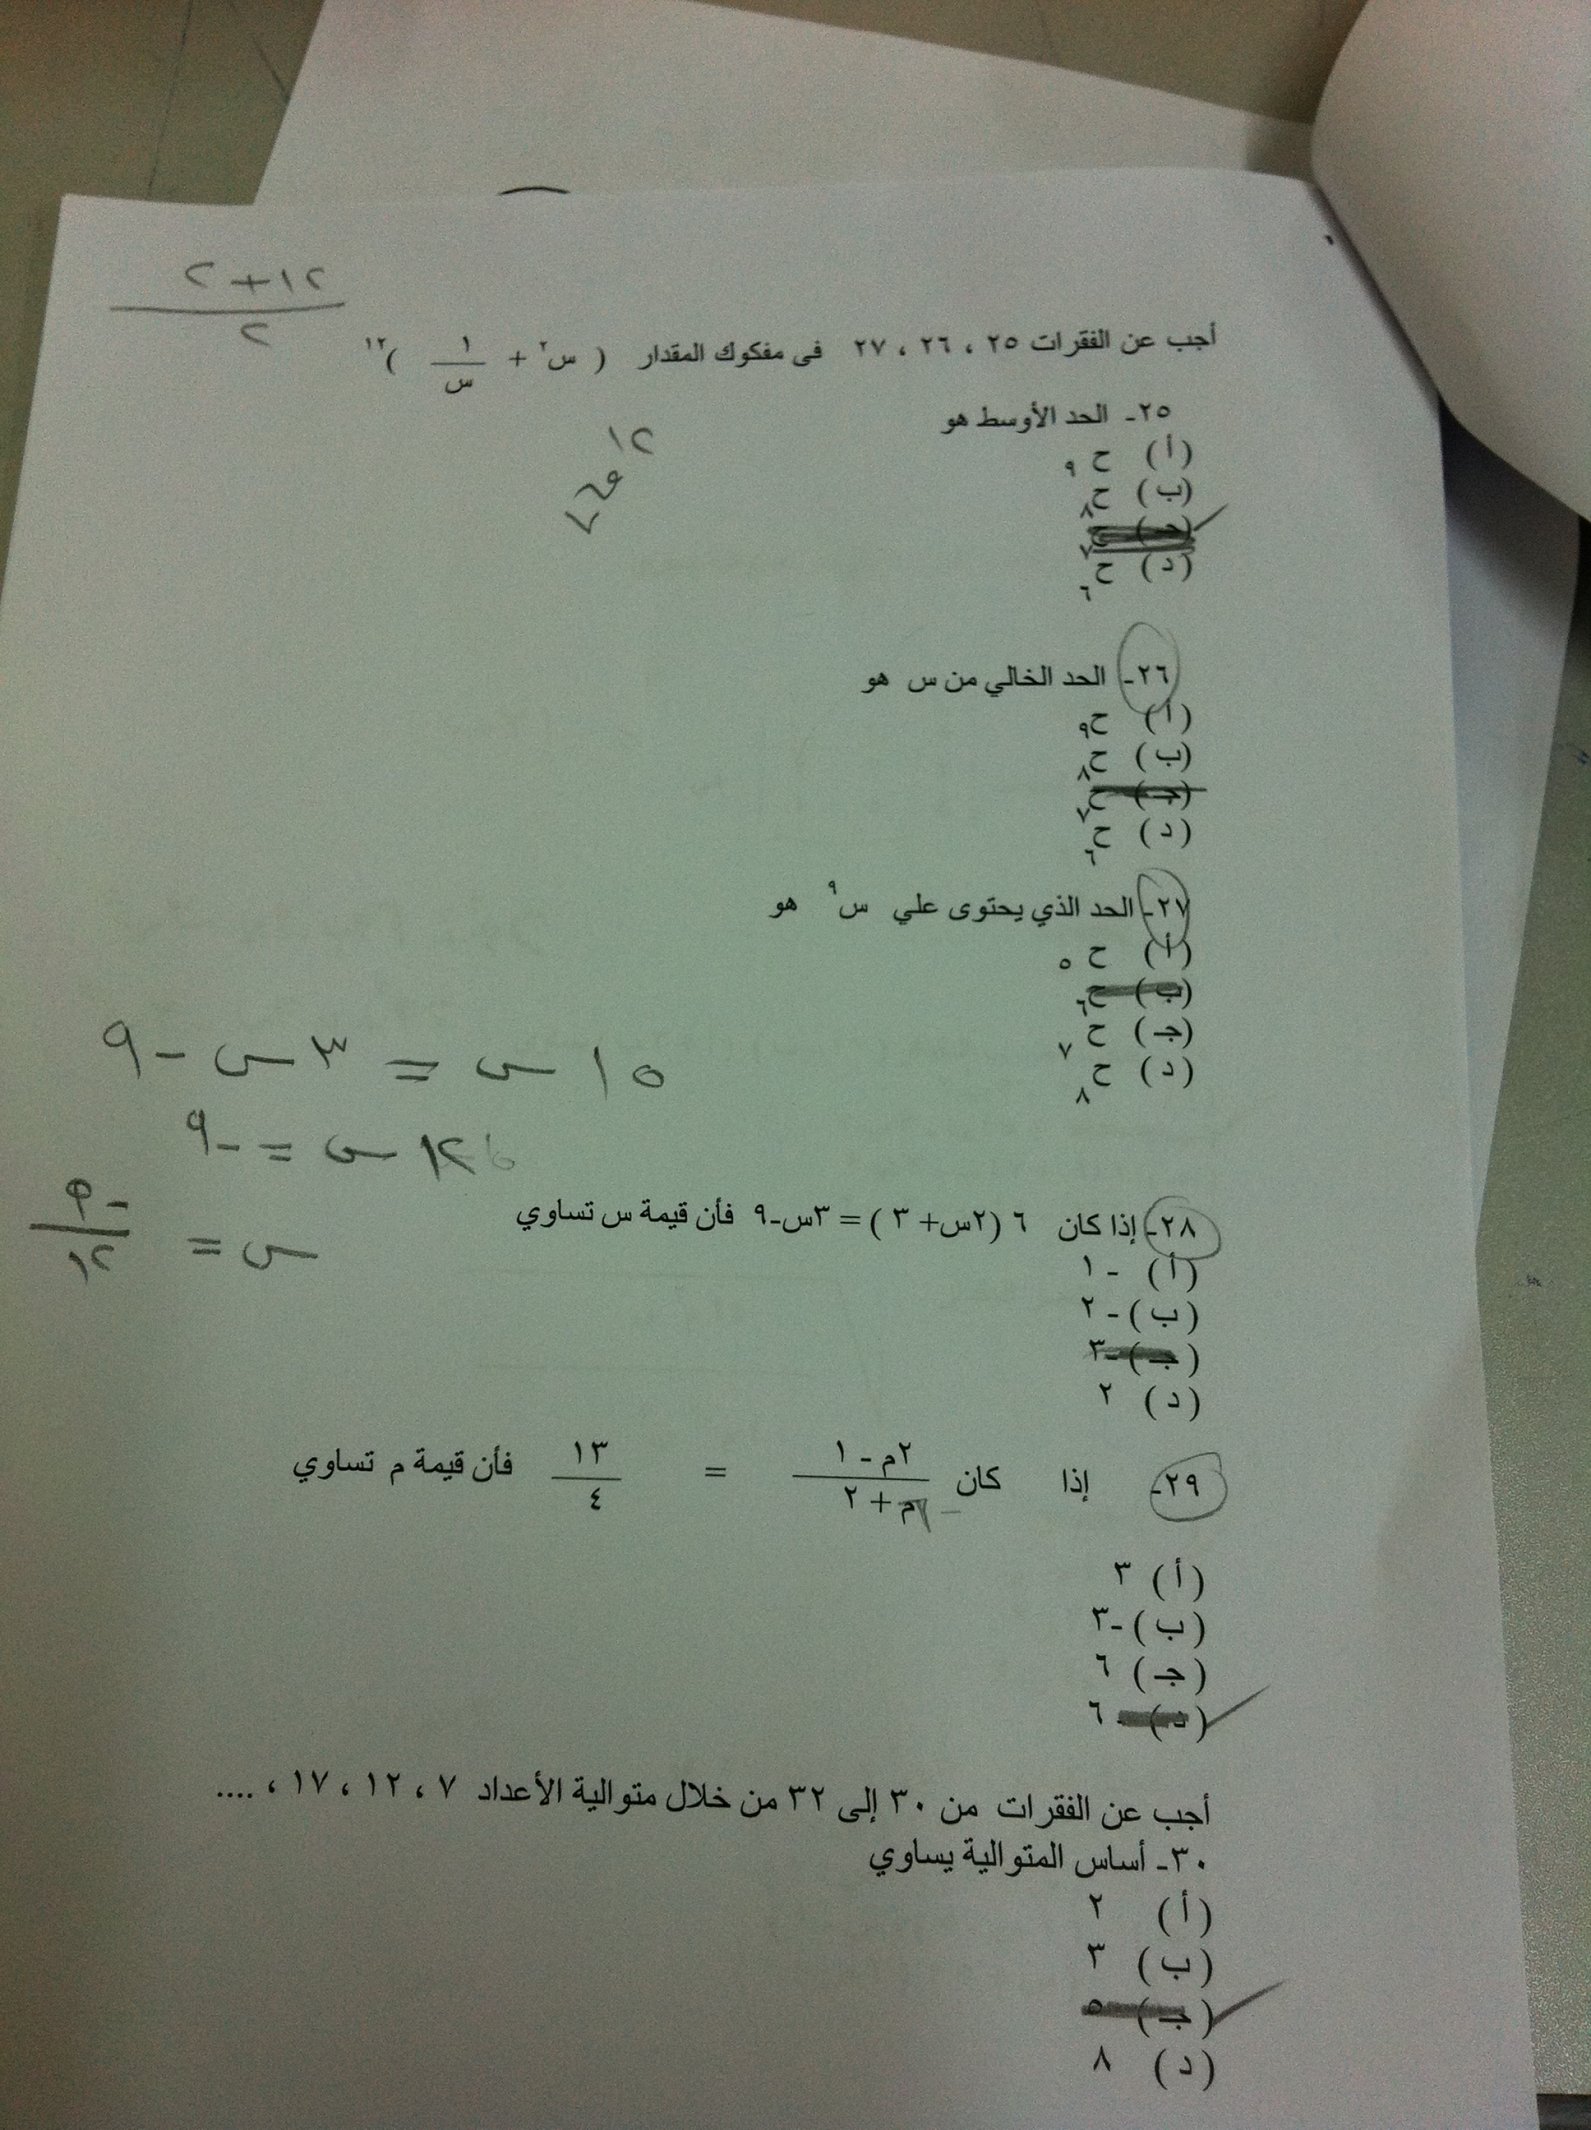 ٢+١٢
٢
أجب عن الفقرات ٢٥ ، ٢٦ ، ٢٧ فى مفكوك المقدار ( س٢ + ١/س )١٢
٢٥- الحد الأوسط هو
(أ) ح٩
(ب) ح٨
(جـ) ح٧
(د) ح٦
١٢
٢٦- الحد الخالي من س هو
(أ) ح٩
(ب) ح٨
(جـ) ح٧
(د) ح٦
٢٧- الحد الذي يحتوى علي س٩ هو
(أ) ح٥
(ب) ح٦
(جـ) ح٧
(د) ح٨
١٥ س = ٣ س - ٩
١٢ س = -٩
س = -٩/١٢
٢٨- إذا كان ٦ (٢س+ ٣ ) = ٣س-٩ فأن قيمة س تساوي
(أ) -١
(ب) -٢
(جـ) -٣
(د) ٢
٢٩- إذا كان ٢م - ١/م + ٢ = ١٣/٤ فأن قيمة م تساوي
(أ) ٣
(ب) -٣
(جـ) ٦
(د) - ٦
أجب عن الفقرات من ٣٠ إلى ٣٢ من خلال متوالية الأعداد ٧ ، ١٢ ، ١٧ ، ....
٣٠- أساس المتوالية يساوي
(أ) ٢
(ب) ٣
(جـ) ٥
(د) ٨